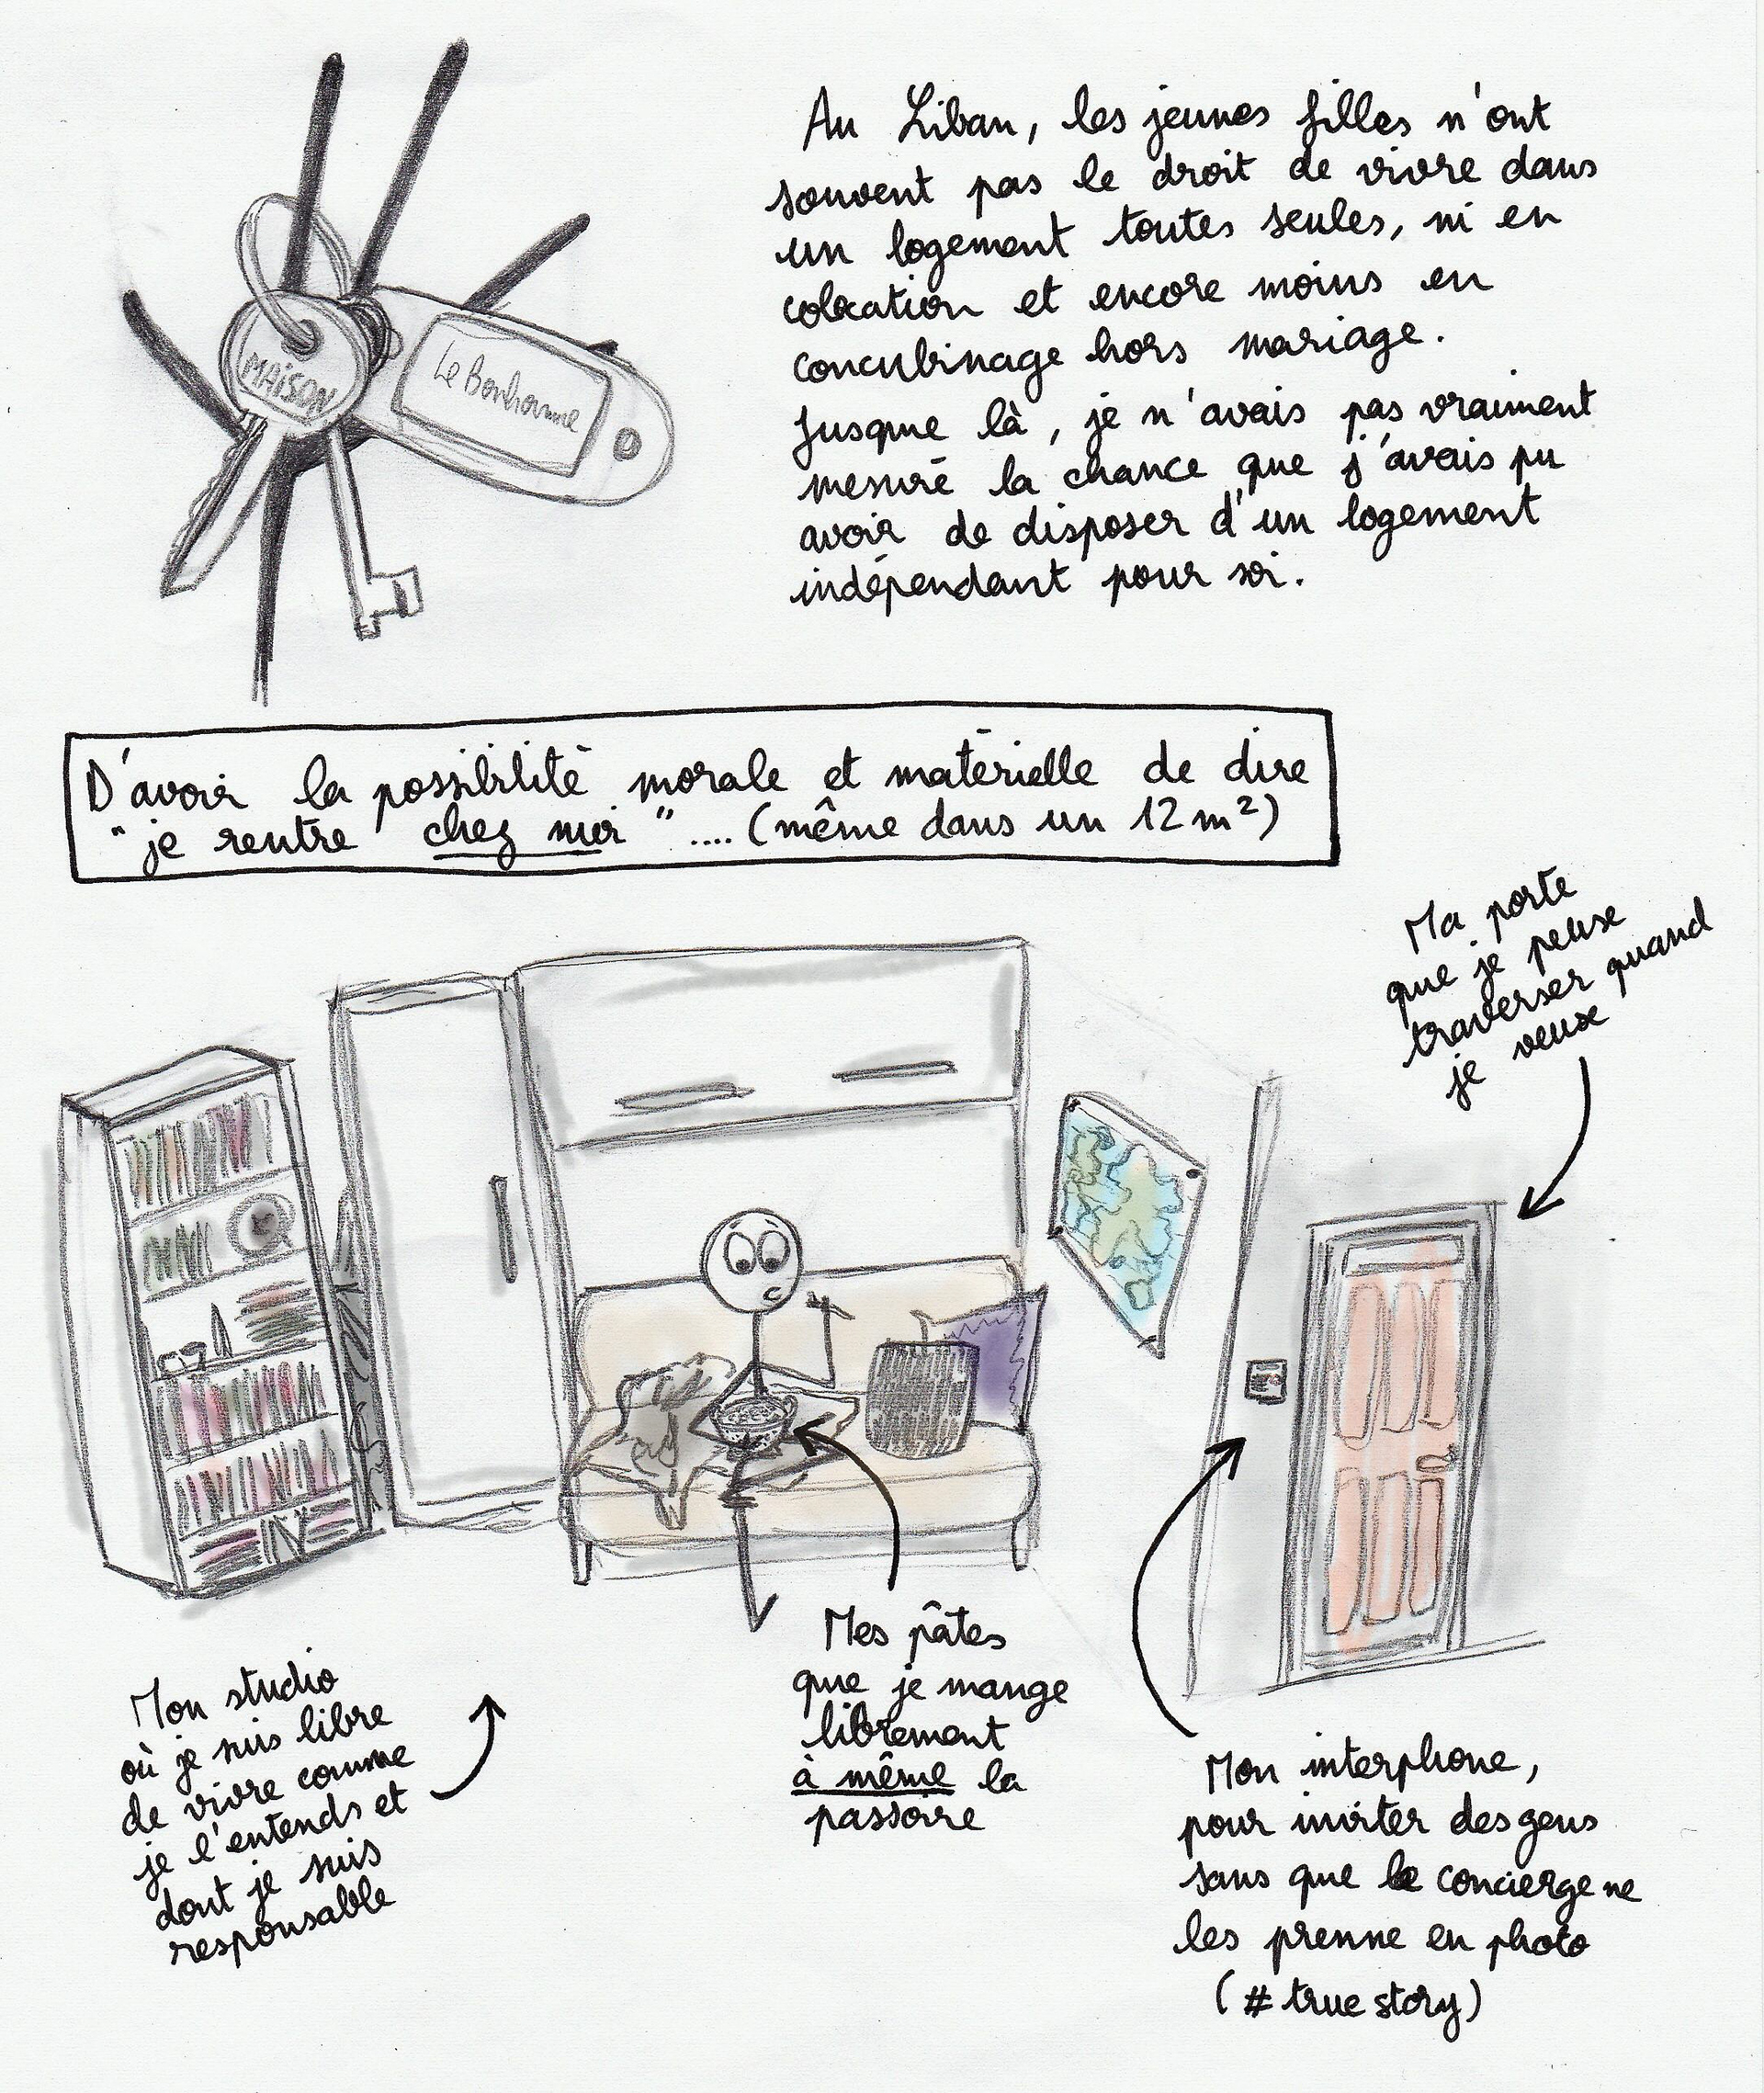 MAISON
Le Bonhomme
Au Liban, les jeunes filles n'ont
souvent pas le droit de vivre dans
un logement toutes seules, ni en
colocation et encore moins en
concubinage hors mariage.
Jusque là, je n'avais pas vraiment
mesuré la chance que j'avais pu
avoir de disposer d'un logement
indépendant pour soi.
D'avoir la possibilité morale et matérielle de dire
"je rentre chez moi".... (même dans un 12 m²)
Ma porte
que je peux
traverser quand
je veux
Mon studio
où je suis libre
de vivre comme
je l'entends et
dont je suis
responsable
Mes pâtes
que je mange
librement
à même la
passoire
Mon interphone,
pour inviter des gens
sans que le concierge ne
les prenne en photo
(# true story)